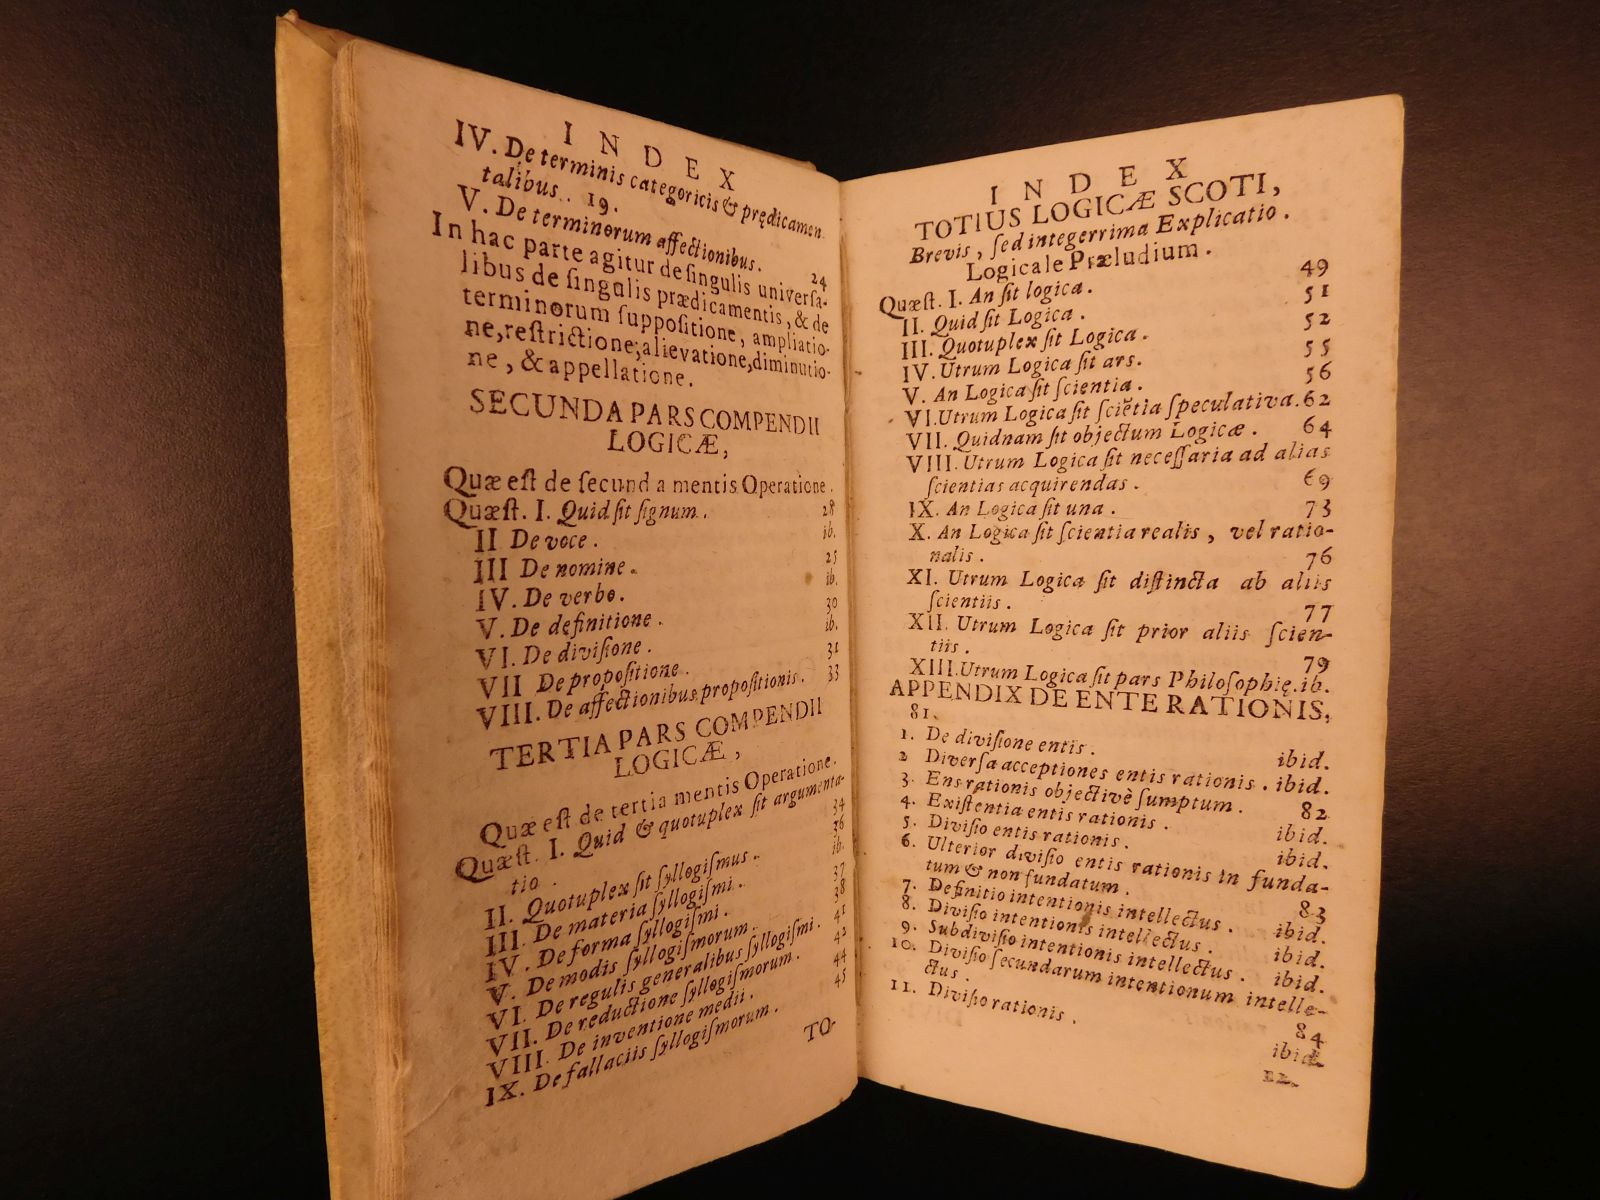 INDEX
IV. De terminis categoricis & prędicamen-
talibus.. 19.
V. De terminorum affectionibus. 24
In hac parte agitur de singulis universa-
libus de singulis prædicamentis, & de
terminorum suppositione, ampliatio-
ne, restrictione; alievatione, diminutio-
ne, & appellatione.
SECUNDA PARS COMPENDII
LOGICÆ,
Quæ est de secund a mentis Operatione.
Quæst. I. Quid sit signum. 28
II De voce. ib.
III De nomine. 25
IV. De verbo. ib.
V. De definitione. 30
VI. De divisione. ib.
VII De propositione. 31
VIII. De affectionibus propositionis. 33
TERTIA PARS COMPENDII
LOGICÆ,
Quæ est de tertia mentis Operatione.
Quæst. I. Quid & quotuplex sit argumenta-
tio. 34
II. Quotuplex sit syllogismus. 36
III. De materia syllogismi. ib.
IV. De forma syllogismi. 37
V. De modis syllogismorum. 38
VI. De regulis generalibus syllogismi. 41
VII. De reductione syllogismorum. 42
VIII. De inventione medii. 44
IX. De fallaciis syllogismorum. 45
TO-
INDEX
TOTIUS LOGICÆ SCOTI,
Brevis, sed integerrima Explicatio.
Logicale Præludium. 49
Quæst. I. An sit logica. 51
II. Quid sit Logica. 52
III. Quotuplex sit Logica. 55
IV. Utrum Logica sit ars. 56
V. An Logica sit scientia.
VI. Utrum Logica sit sciētia speculativa. 62
VII. Quidnam sit objectum Logicæ. 64
VIII. Utrum Logica sit necessaria ad alias
scientias acquirendas. 69
IX. An Logica sit una. 73
X. An Logica sit scientia realis, vel ratio-
nalis. 76
XI. Utrum Logica sit distincta ab aliis
scientiis. 77
XII. Utrum Logica sit prior aliis scien-
tiis. 79
XIII. Utrum Logica sit pars Philosophię. ib.
APPENDIX DE ENTE RATIONIS,
81.
1. De divisione entis. ibid.
2 Diversa acceptiones entis rationis. ibid.
3. Ens rationis objectivè sumptum. 82
4. Existentia entis rationis. ibid.
5. Divisio entis rationis. ibid.
6. Ulterior divisio entis rationis in funda-
tum & non fundatum. 83
7. Definitio intentionis intellectus. ibid.
8. Divisio intentionis intellectus. ibid.
9. Subdivisio intentionis intellectus. ibid.
10. Divisio secundarum intentionum intelle-
ctus. 84
11. Divisio rationis. ibid.
12.